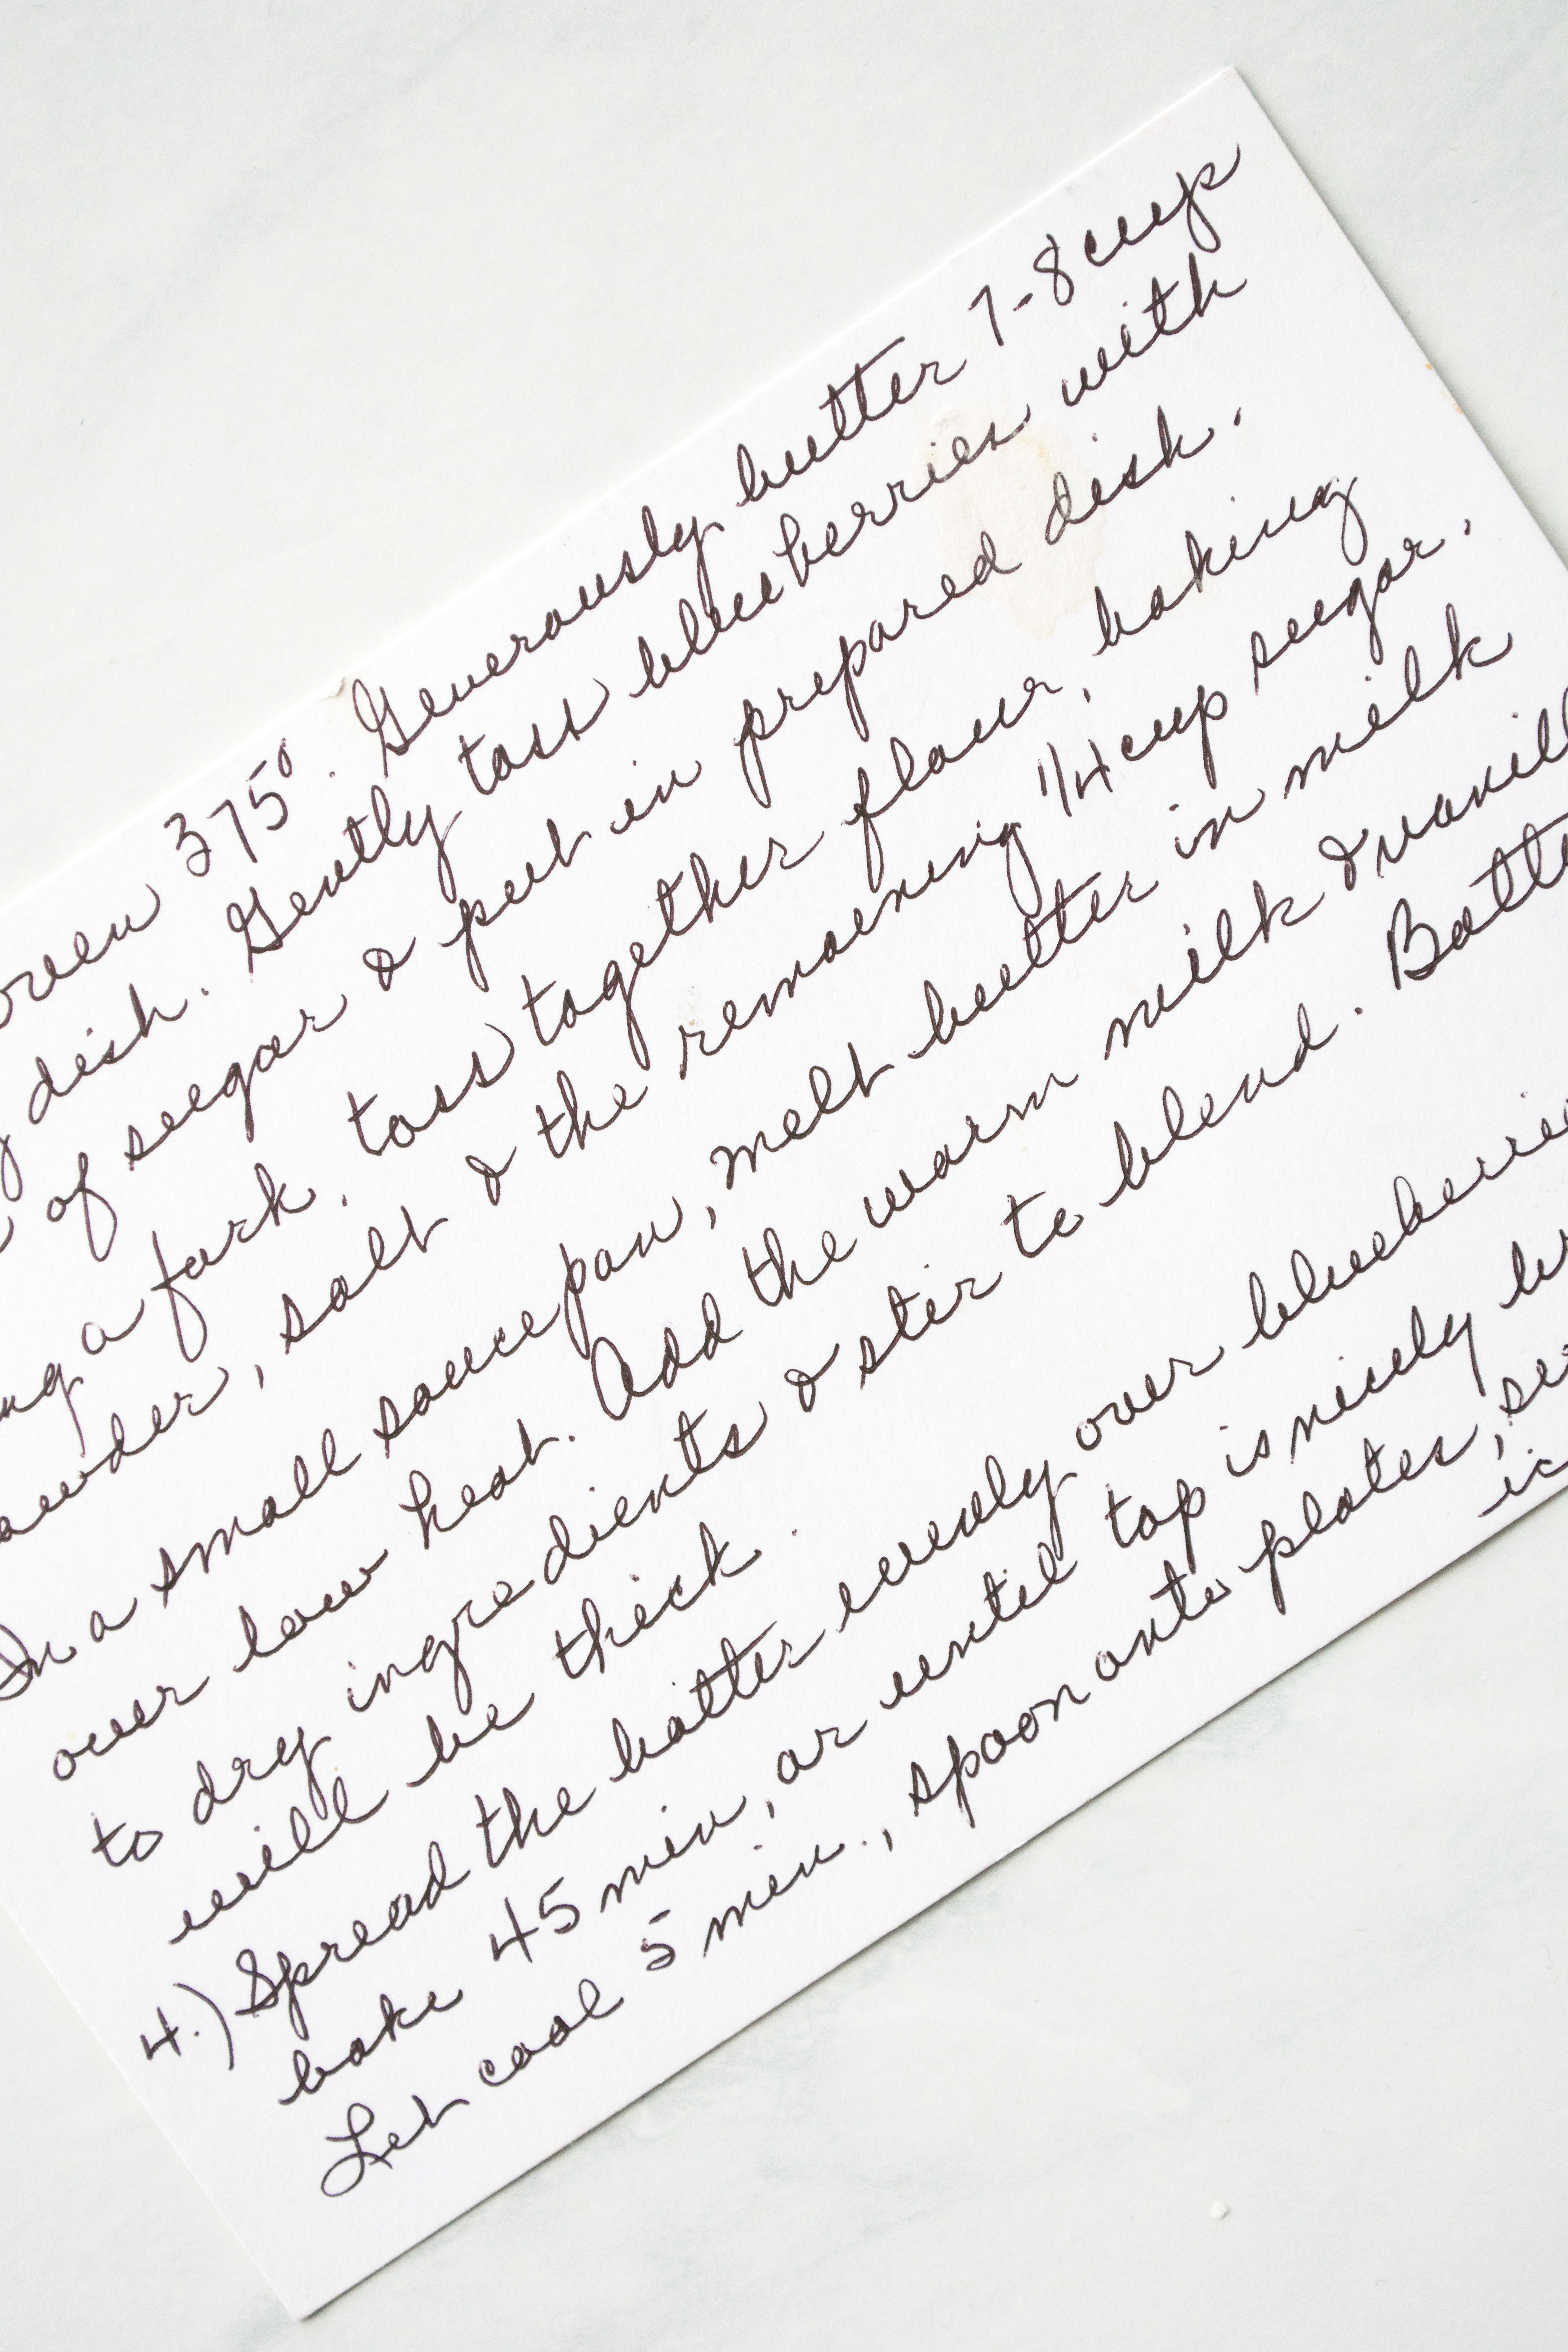 oven 375°. Generously butter 7-8 cup
dish. Gently toss blueberries with
of sugar & put in prepared dish.
a fork, toss together flour, baking
salt & the remaining 1/4 cup sugar.
In a small saucepan, melt butter in milk
over low heat. Add the warm milk & vanill
to dry ingredients & stir to blend. Batte
will be thick.
4.) Spread the batter evenly over blueberrie
bake 45 min, or until top is nicely br
Let cool 5 min., spoon onto plates, se
ic